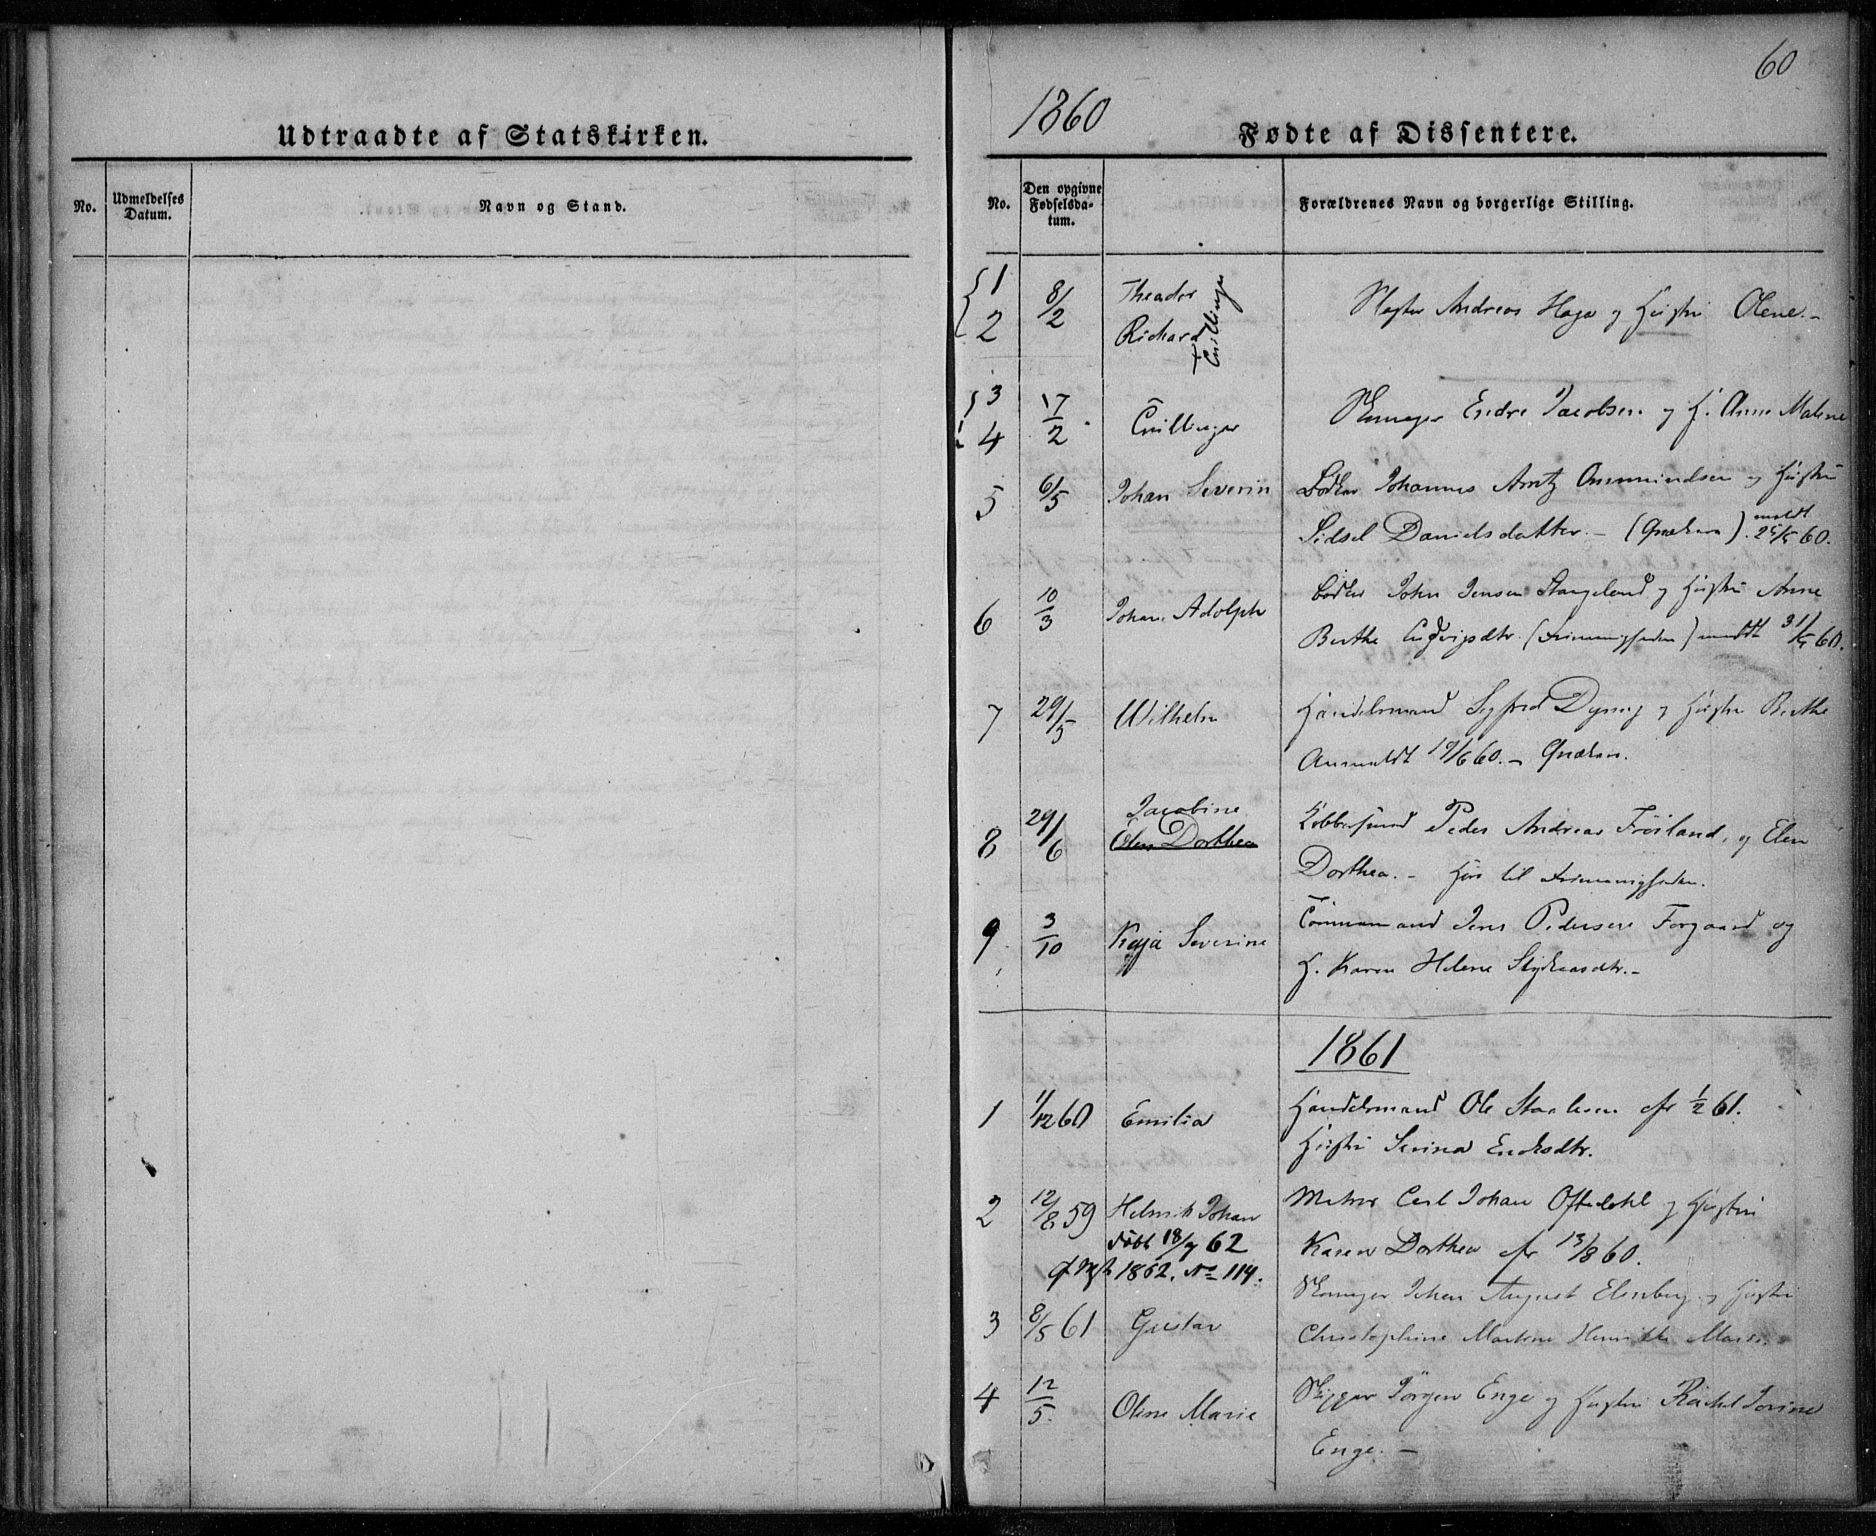 Udtraadte af Statskirken.
No.
Udmeldelses
Datum.
Navn og Stand.
60
1860
Fødte af Dissentere.
No.
Den opgivne
Fødselsda-
tum.
Forældrenes Navn og borgerlige Stilling.
1 8/2 Theador
2 Richard Tvillinger
Andreas Haga og Hustru Olene.-
3 17/2 Tvillinger Skomager Endre Jacobsen og H. Anne Malene
4
5 6/5 Johan Severin Bødker Johannes Arntz Ommundsen og Hustru
Sidsel Danielsdatter. - (Qvækere). meldt 25/5 60.
6 10/3 Johan Adolph Bødker John Jensen Stangeland og Hustru Anne
Berthe Ludvigsdtr. (Frimenigheden) meldt 31/5 60.
7 29/5 Wilhelm Handelsmand Sigfred Dyring og Hustru Berthe
Anmeldt 19/6 60. - Qvækere.
8 29/6 Jacobine
Elen Dorthea
Peder Andreas Fröiland, og Elen
Dorthea. - Hører til Frimenigheden.
9 3/10 Kaja Severine Tømmermand Jens Pedersen Forgaard og
H. Karen Helene
1861
1 1/12 60 Emilia Handelsmand Ole 1/2 61.
Hustru Serina Endresdtr.
2 12/8 59 Helmik Johan Carl Johan Oftedahl og Hustru
døbt 18/7 62
1862. No 114.
Karen Dorthea 13/8 60.
3 8/5 61 Gustav Skomager Johan August Elenberg og Hustru
Christophine Martine Henrikke Marie.
4 12/5. Oline Marie Skipper Jörgen Enge og Hustru Rachel Torine
Enge. -